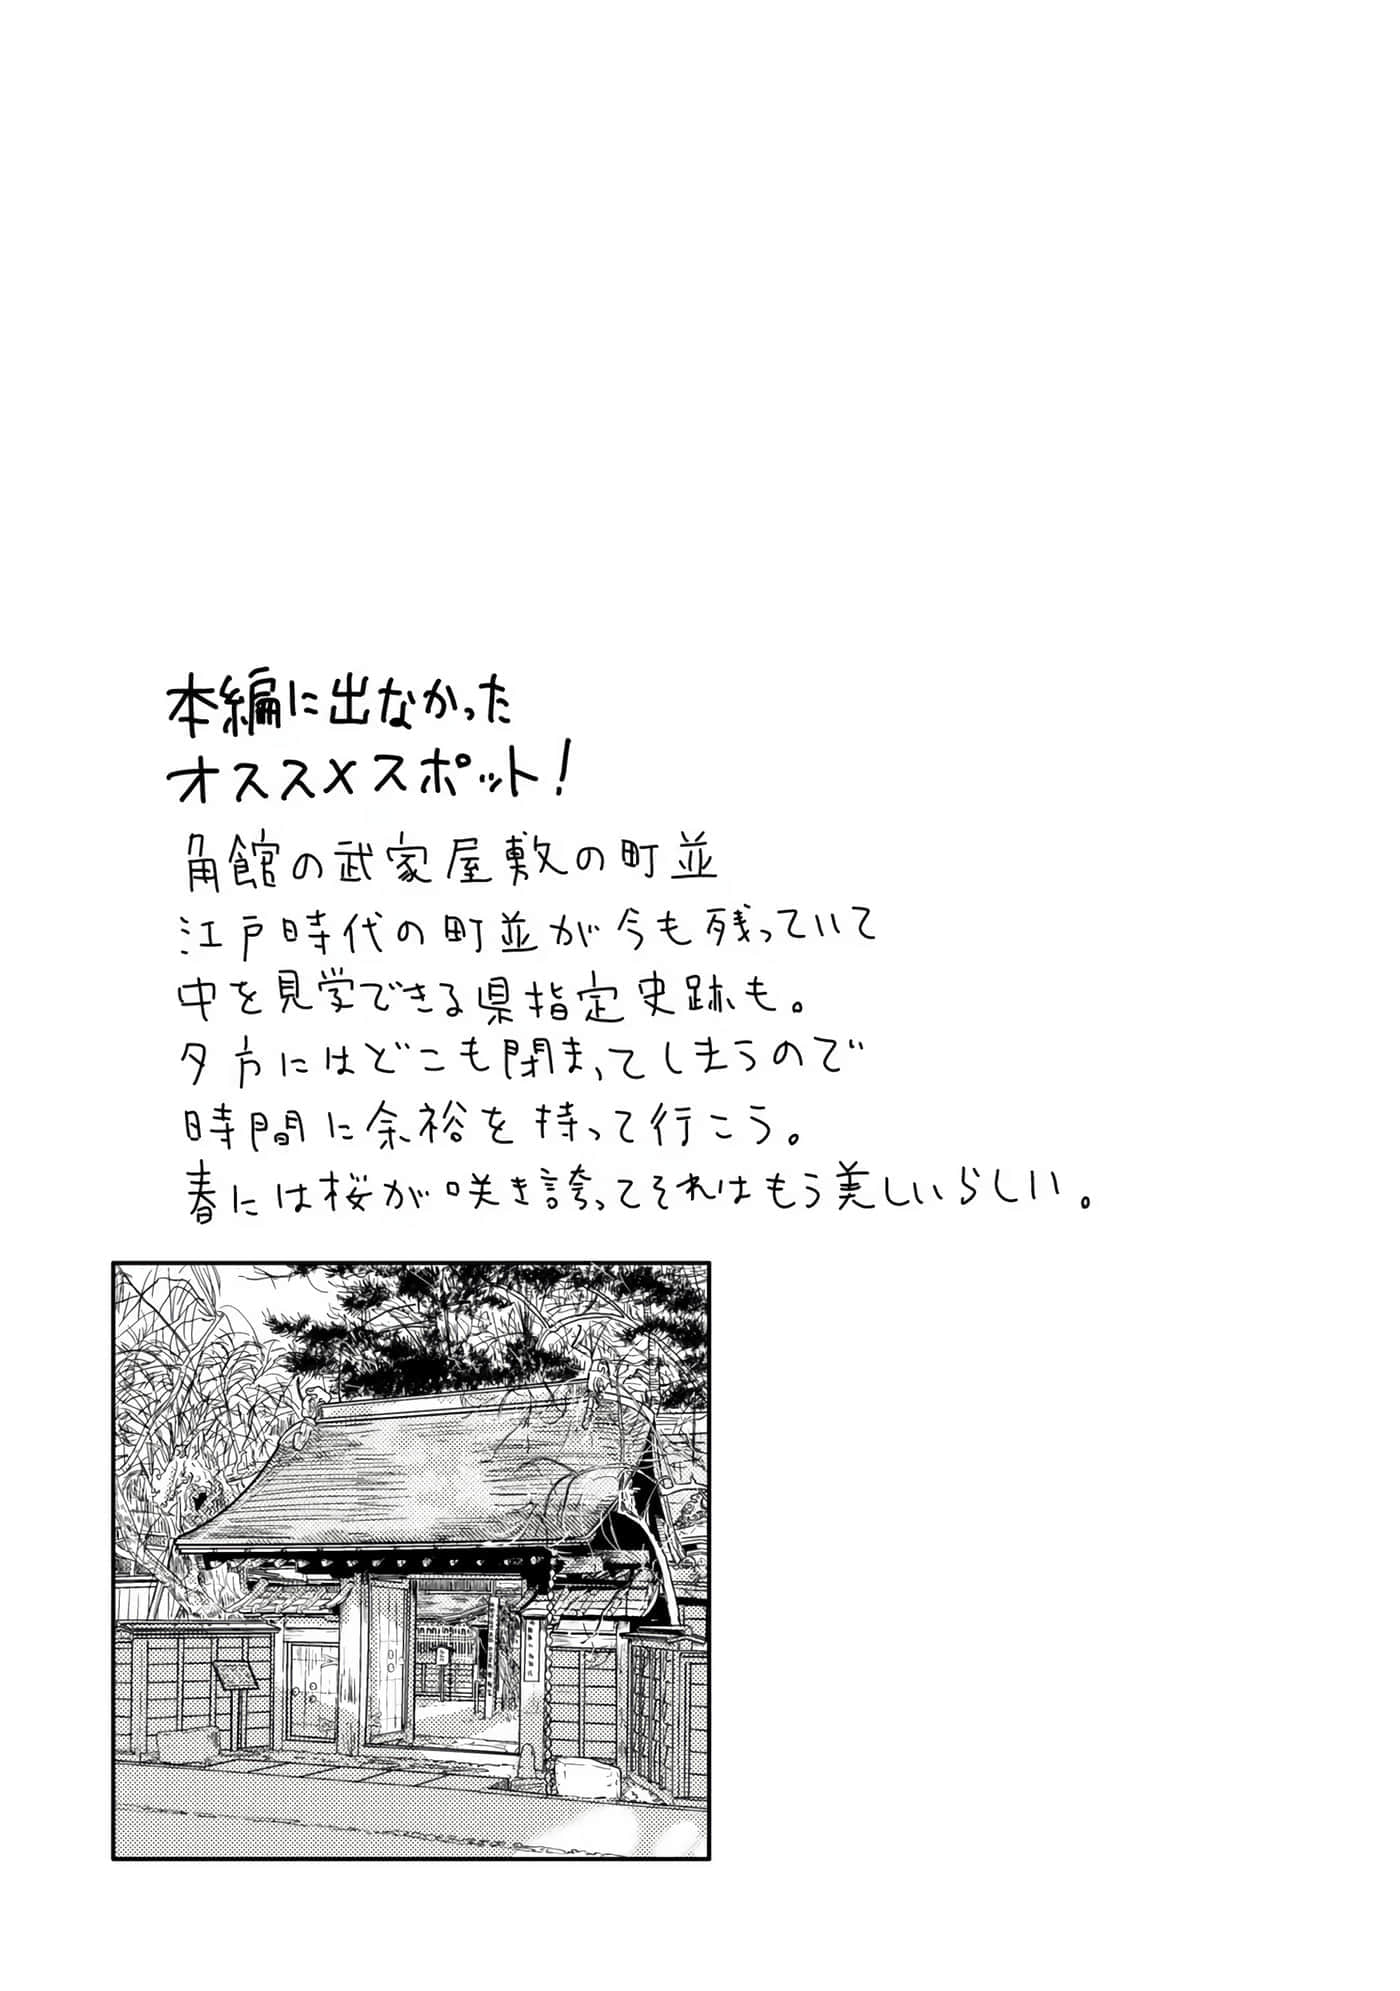 本編に出なかった
オススメスポット!
角館の武家屋敷の町並
江戸時代の町並が今も残っていて
中を見学できる県指定史跡も。
夕方にはどこも閉まってしまうので
時間に余裕を持って行こう。
春には桜が咲き誇ってそれはもう美しいらしい。